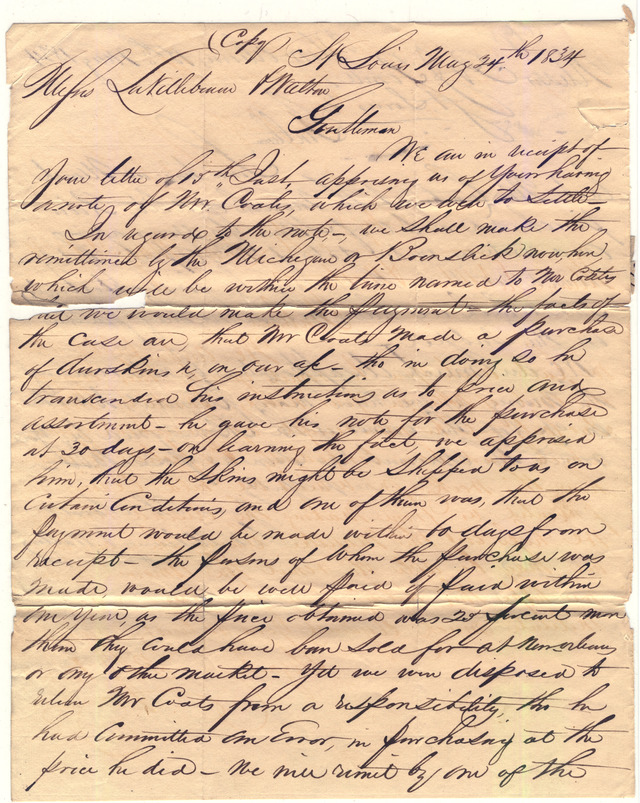 (Copy) St Louis May 24th 1834
Messrs & Walton
Gentlemen
We are in receipt of
Your letter of 15th Inst, apprising us of your having
a note of Mr. Coates, which we were to settle—
In regard to the note—, we shall make the
remittance by the Michegan or Boonslick now here
which will be within the time named to Mr Coates
that we would make the payment— the facts of
the case are, that Mr Coats made a purchase
of deerskins &c on our a/c— tho in doing so he
transcended his instructions as to price and
assortment— he gave his note for the purchase
at 30 days,— on learning the fact we apprised
him, that the skins might be shipped to us on
Certain Conditions, and one of them was, that the
payment would be made within 60 days from
receipt— the persons of whom the purchase was
made, would be well paid if paid within
one year, as the price obtained was 25 percent more
than they could have been sold for at Neworleans
or any other market— Yet we were disposed to
relieve Mr Coats from a responsibility, tho he
had Committed an Error, in purchasing at the
price he did— We will remit by one of the